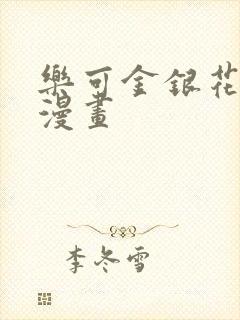 樂可金銀花
漫畫
李冬雪